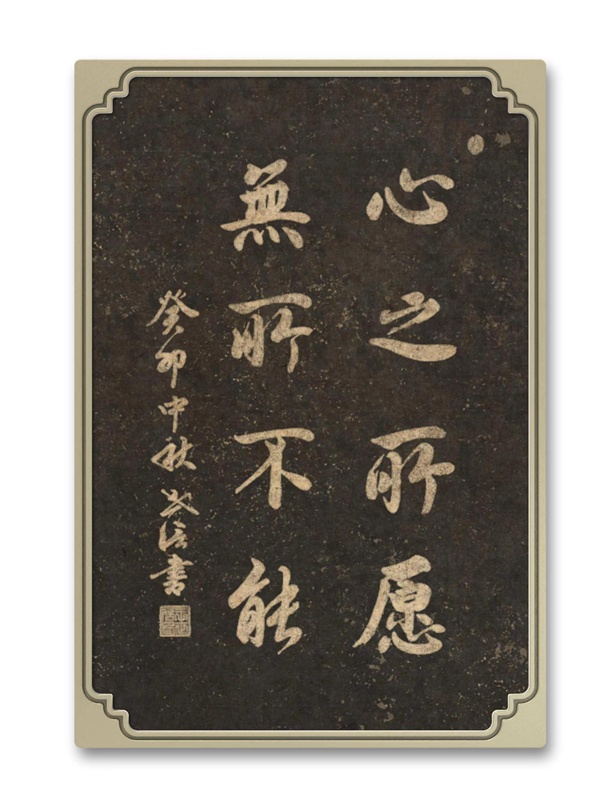 心之所愿
無所不能
癸卯中秋 书信書